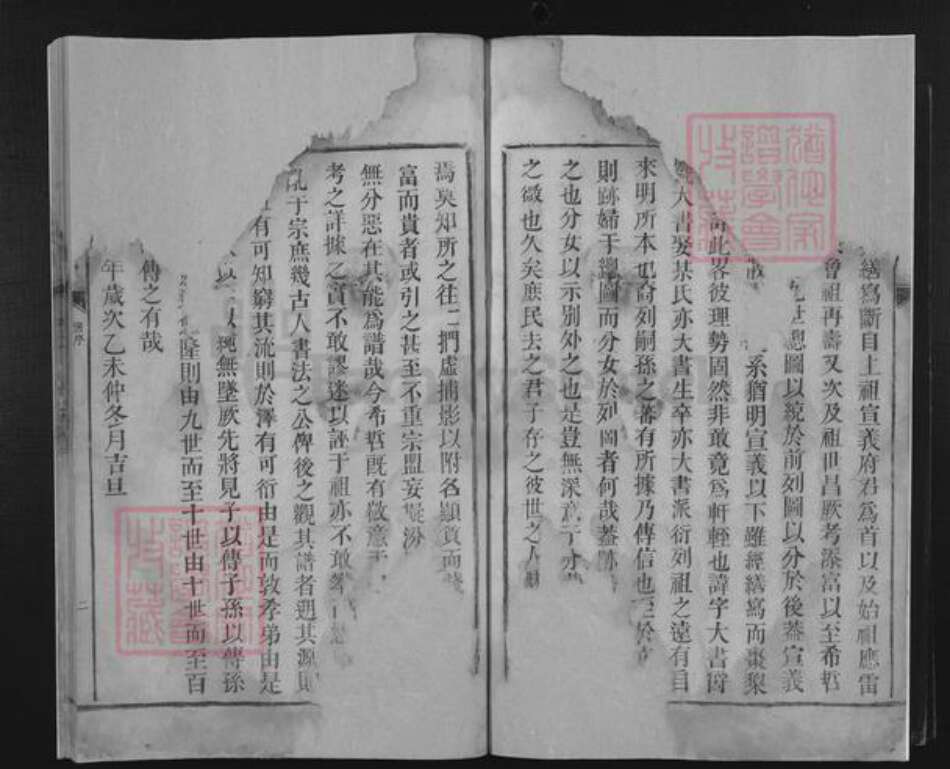 繕寫斷自上祖宣義府君爲首以及始祖應雷
曾祖再壽又次及祖世昌厥考添富以至希哲
總圖以統於前列圖以分於後蓋宣義
系猶明宣義以下雖經繕寫而棗梨
此畧彼理勢固然非敢竟爲軒輊也諱字大書時
大書娶某氏亦大書生卒亦大書派衍列祖之遠有自
來明所本也奇列嗣孫之蕃有所據乃傳信也至於
則跡婦于總圖而分女於列圖者何哉蓋跡
之也分女以示別外之也是豈無深意于
之徵也久矣庶民去之君子存之彼世之人
焉莫知所之往二捫虛捕影以附名顯貴而
富而貴者或引之甚至不重宗盟妄擬汾
無分惡在其能爲譜哉今希哲既有敬意于
考之詳據之實不敢謬迷以誣于祖亦不敢
亂于宗庶幾古人書法之公俾後之觀其譜者遡其源則
有可知窮其流則於澤有可衍由是而敦孝弟由是
無墜厥先將見子以傳子孫以傳孫
隆則由九世而至十世由十世而至百
傳之有哉
年歲次乙未仲冬月吉旦
譜序
二